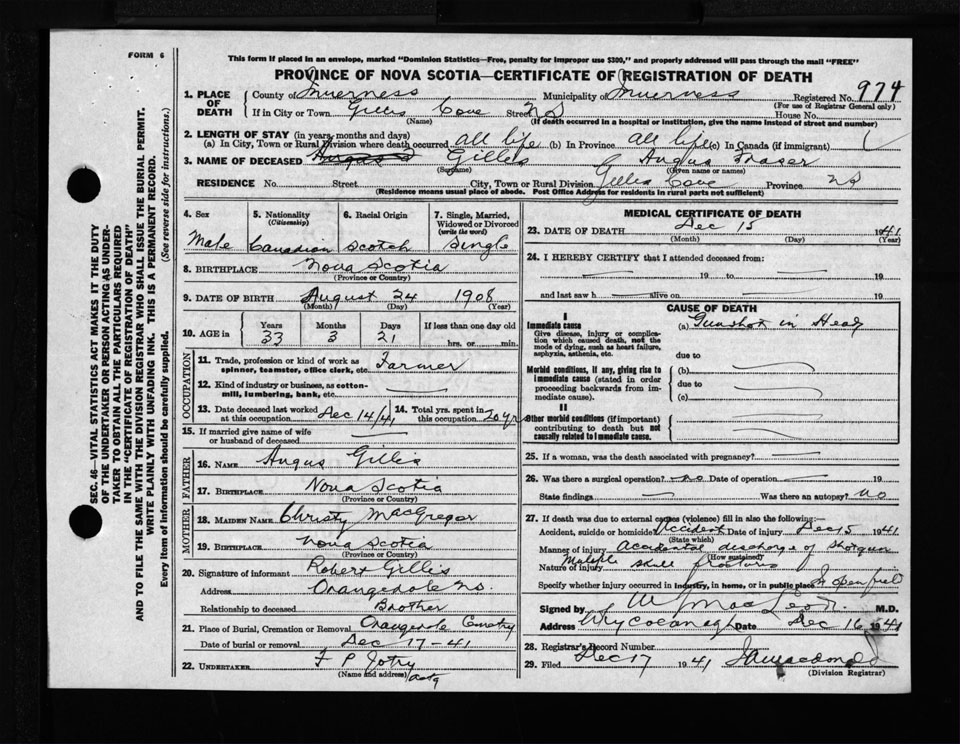 FORM 6
This form if placed in an envelope, marked "Dominion Statistics—Free, penalty for improper use $300," and properly addressed will pass through the mail "FREE"
PROVINCE OF NOVA SCOTIA—CERTIFICATE OF REGISTRATION OF DEATH
1. PLACE OF DEATH
County of Inverness Municipality of Inverness Registered No. 974
(For use of Registrar General only)
If in City or Town Gillis Cove Street NS House No.
(Name) (If death occurred in a hospital or institution, give the name instead of street and number)
2. LENGTH OF STAY (in years, months and days)
(a) In City, Town or Rural Division where death occurred all life (b) In Province all life (c) In Canada (if immigrant)
3. NAME OF DECEASED Angus Gillis Angus Fraser
(Surname) (Given name or names)
RESIDENCE No. Street City, Town or Rural Division Gillis Cove Province NS
(Residence means usual place of abode. Post Office Address for residents in rural parts not sufficient)
4. Sex
Male
5. Nationality
(Citizenship)
Canadian
6. Racial Origin
Scotch
7. Single, Married, Widowed or Divorced
(write the word)
Single
8. BIRTHPLACE Nova Scotia
(Province or Country)
9. DATE OF BIRTH August 24 1908
(Month) (Day) (Year)
10. AGE in Years Months Days If less than one day old
33 3 21 hrs. or min.
OCCUPATION
11. Trade, profession or kind of work as spinner, teamster, office clerk, etc. Farmer
12. Kind of industry or business, as cotton-mill, lumbering, bank, etc.
13. Date deceased last worked at this occupation Dec 14/41
14. Total yrs. spent in this occupation 20 yr
15. If married give name of wife or husband of deceased
FATHER
16. NAME Angus Gillis
17. BIRTHPLACE Nova Scotia
(Province or Country)
MOTHER
18. MAIDEN NAME Christy MacGregor
19. BIRTHPLACE Nova Scotia
(Province or Country)
20. Signature of informant Robert Gillis
Address Orangedale NS.
Relationship to deceased Brother
21. Place of Burial, Cremation or Removal Orangedale Cemetry
Date of burial or removal Dec 17-41
22. UNDERTAKER F P
(Name and address)
MEDICAL CERTIFICATE OF DEATH
23. DATE OF DEATH Dec 15 1941
(Month) (Day) (Year)
24. I HEREBY CERTIFY that I attended deceased from:
19 to 19
and last saw h alive on 19
CAUSE OF DEATH
I
Immediate cause
Give disease, injury or complication which caused death, not the mode of dying, such as heart failure, asphyxia, asthenia, etc.
(a) Gunshot in Head
due to
Morbid conditions, if any, giving rise to immediate cause (stated in order proceeding backwards from immediate cause).
(b)
due to
(c)
II
Other morbid conditions (if important) contributing to death but not causally related to immediate cause.
25. If a woman, was the death associated with pregnancy?
26. Was there a surgical operation? no Date of operation 19
State findings Was there an autopsy? no
27. If death was due to external causes (violence) fill in also the following:—
Accident, suicide or homicide? Accident Date of injury Dec 15 1941
(State which)
Manner of injury Accidental discharge of Shotgun
(How sustained)
Nature of injury Multiple skull fractures
Specify whether injury occurred in industry, in home, or in public place In open field
Signed by MacLeod M.D.
Address Whycocomagh Date Dec 16 1941
28. Registrar's Record Number
29. Filed Dec 17 1941 Macdonald
(Division Registrar)
SEC. 46—VITAL STATISTICS ACT MAKES IT THE DUTY
OF THE UNDERTAKER OR PERSON ACTING AS UNDER-
TAKER TO OBTAIN ALL THE PARTICULARS REQUIRED
IN THE "CERTIFICATE OF REGISTRATION OF DEATH"
AND TO FILE THE SAME WITH THE DIVISION REGISTRAR WHO SHALL ISSUE THE BURIAL PERMIT.
WRITE PLAINLY WITH UNFADING INK. THIS IS A PERMANENT RECORD.
Every item of information should be carefully supplied. (See reverse side for instructions.)